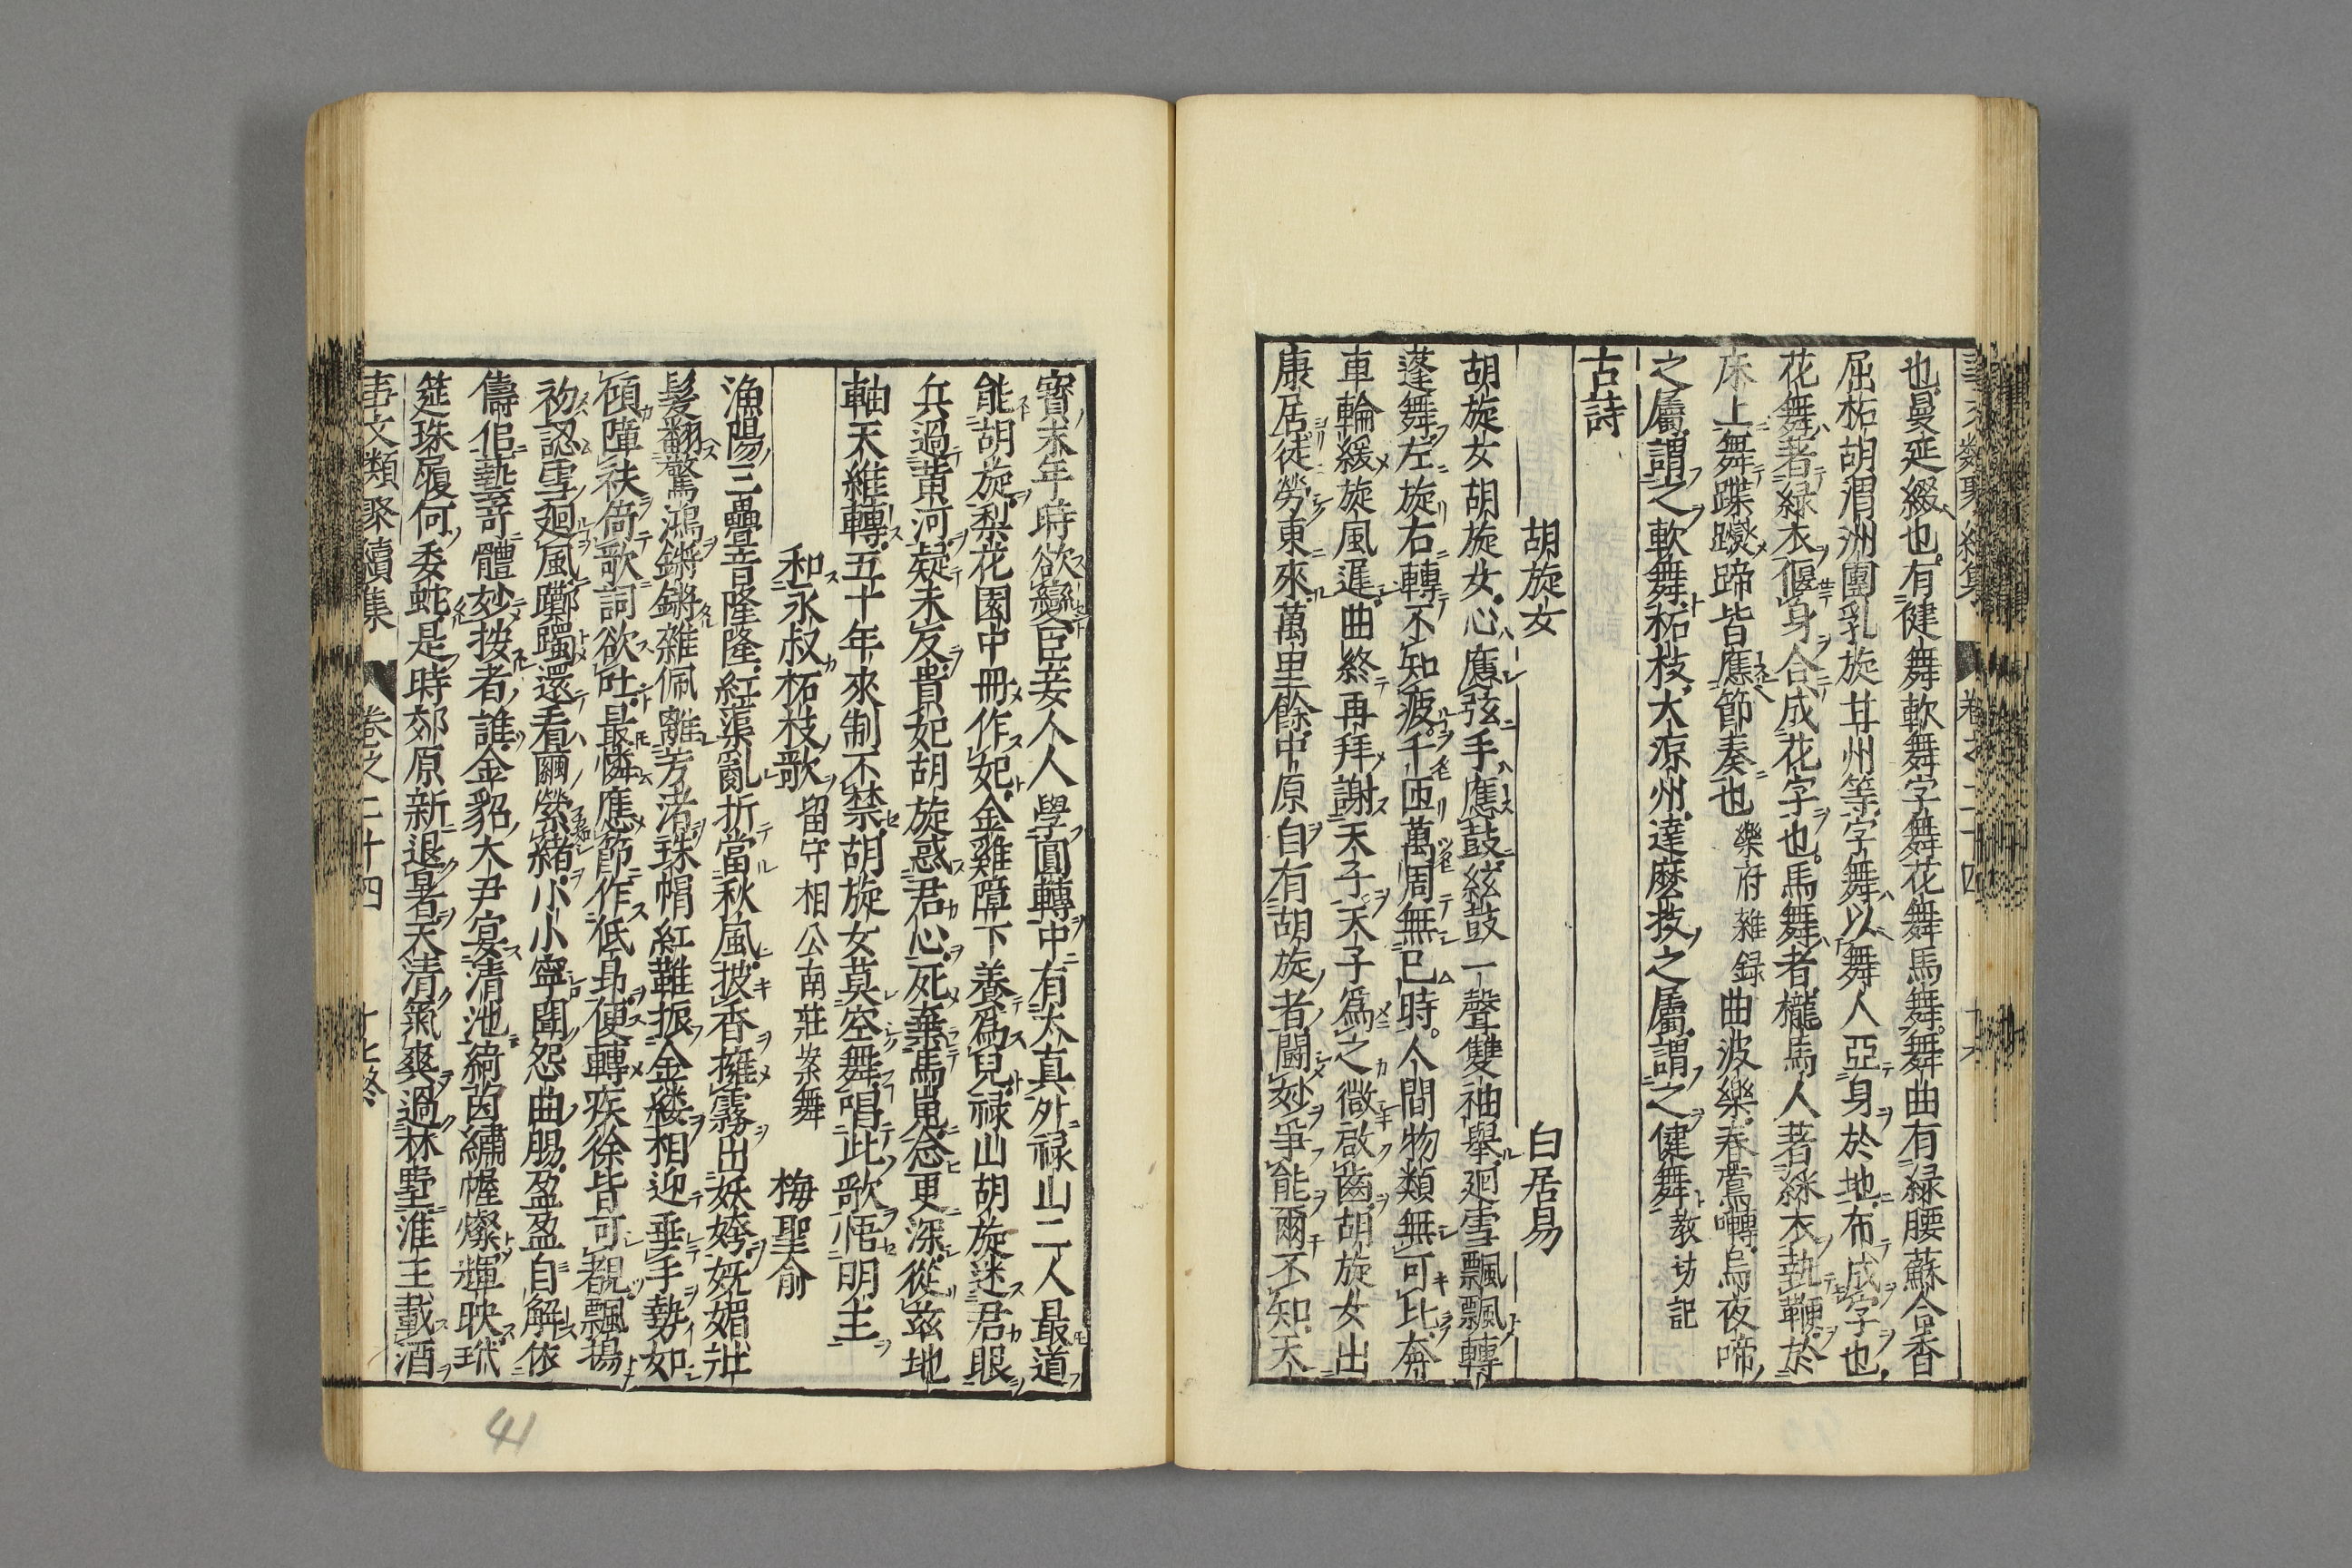 也曼延綴也有健舞軟舞字舞花舞馬舞舞曲有緑腰蘇合香
屈柘胡渭洲團乳旋甘州等字舞以舞人亞身於地布成字也
花舞著緑衣偃身合成花字也馬舞者櫳馬人著綵衣執鞭於
床上舞蹀躞蹄皆應節奏也樂府雜録曲波樂春鶯囀烏夜啼
之屬謂之軟舞柘枝大凉州達麽技之屬謂之健舞教坊記
古詩
胡旋女 白居易
胡旋女胡旋女心應弦手應鼓絃鼓一聲雙袖舉廻雪飄飄轉
蓬舞左旋右轉不知疲千匝萬周無已時人間物類無可比奔
車輪緩旋風遲曲終再拜謝天子天子爲之微啟齒胡旋女出
康居徒勞東來萬里餘中原自有胡旋者鬪妙爭能爾不知天
寳末年時欲變臣妾人人學圓轉中有太真外禄山二人最道
能胡旋梨花園中冊作妃金雞障下養爲兒禄山胡旋迷君眼
兵過黄河疑未反貴妃胡旋惑君心死棄馬嵬念更深從兹地
軸天維轉五十年來制不禁胡旋女莫空舞唱此歌悟明主
和永叔柘枝歌 留守相公南莊案舞 梅聖俞
漁陽三疊音隆隆紅蕖亂折當秋風披香擁霧出妖嫮妩媚訨
髪翻驚鴻鏘鏘雜佩離芳渚珠帽紅靴振金縷相迎垂手勢如
頎障袂倚歌詞欲吐最憐應節作低昻便轉疾徐皆可覩飄揚
初認雪廻風躑躅還看繭縈緒小小寧聞怨曲腸盈盈自解依
儔侶藝竒體妙按者誰金貂大尹宴清池綺茵繡幄燦輝映玳
筵珠履何委蛇是時郊原新退暑天清氣爽過林墅淮王載酒
事文類聚續集 卷之二十四 十七終